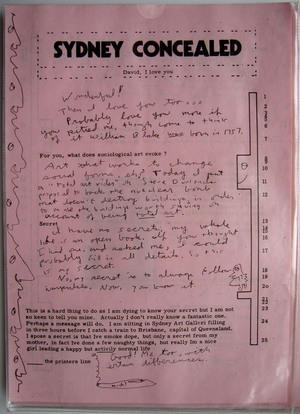 SYDNEY CONCEALED
David, I love you
Wonderful!
Then I love you too...
Probably love you more if
you pitied me, though come to think
of it William Blake was born in 1757.
For you, what does sociological art evoke ?
Art that works to change
social forms, eh? Today I put
a "total art video" by Steve Davis
to the nuclear bomb
that doesn't destroy buildings, in order
to make the buildings worth saving on
account of being total art.
Secret
I have no secrets, my whole
life is an open book. If you thought
I had one and asked me, I could
probably fill in all details. So this
is my secret.
No, my secret is to always follow
Now you know it
This is a hard thing to do as I am dying to know your secret but I am not
so keen to tell you mine. Actually I don't really know a fantastic one.
Perhaps a message will do. I am sitting in Sydney Art Gallrei filling
in three hours before I catch a train to Brisbane, capital of Queensland.
I spose a secret is that Ive smoke dope, but only a secret from my
mother, in fact Ive done a few naughty things, but really Im a nice
girl leading a happy but activly normal life
Good! Me too, with
certain differences.
the printers line
1
2
3
4
5
6
7
8
9
10
11
12
13
14
15
16
17
18
19
20
21
22
23
24
25